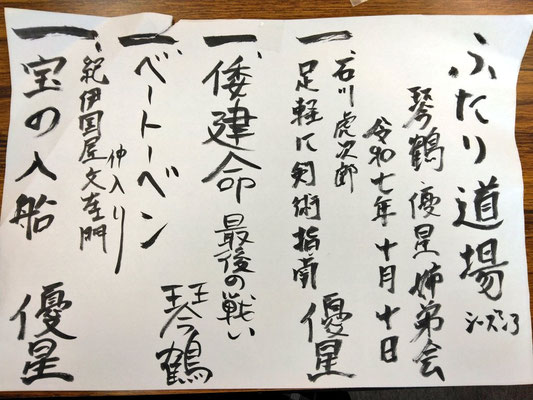 ふたり道場
シーズン3
琴鶴・優星姉弟会
令和七年十月十日
一、石川虎次郎
足軽に剣術指南 優星
一、倭建命 最後の戦い
一、ベートーベン 琴鶴
仲入り
一、紀伊国屋文左門
宝の入船 優星